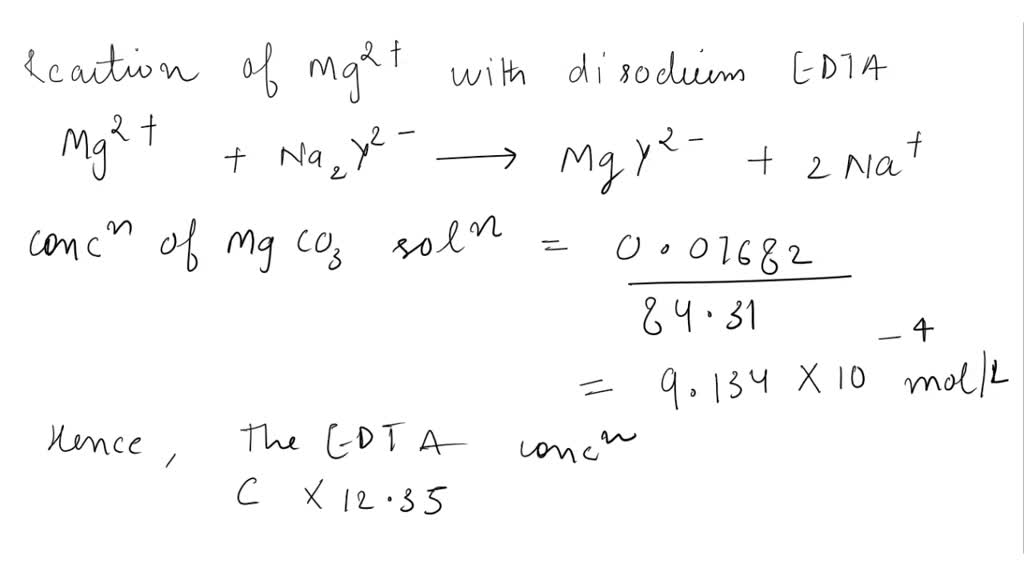 Reaction of Mg²⁺ with disodium EDTA
Mg²⁺ + Na₂Y²⁻ ⟶ MgY²⁻ + 2Na⁺
concⁿ of MgCO₃ solⁿ = 0.07682 / 84.31
= 9.134 × 10⁻⁴ mol/L
Hence, The EDTA concⁿ
C × 12.35